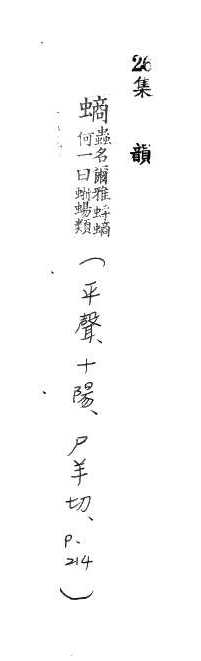 26集韻
螪蟲名爾雅蛶螪何一曰蜥蜴類（平聲、十陽、尸羊切、P.214）